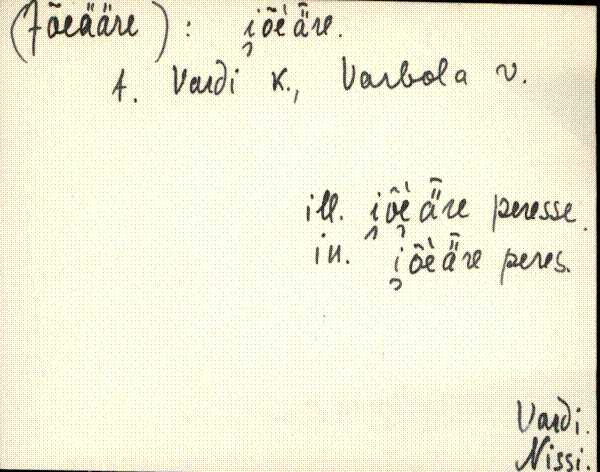 (Jõeääre): i̯õèǟre.
t. Vardi k., Varbola v.
ill. i̯õèǟre peresse.
in. i̯õèǟre peres.
Vardi.
Nissi.